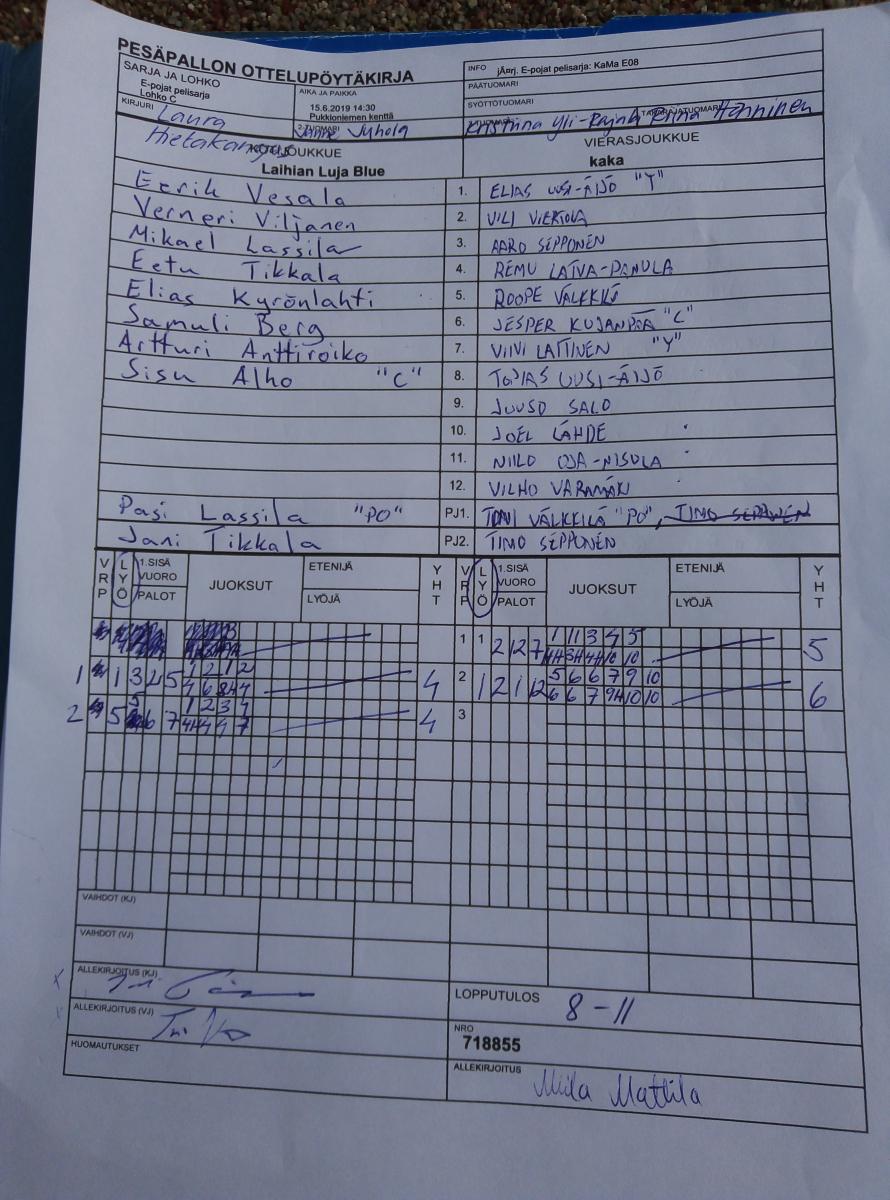 PESÄPALLON OTTELUPÖYTÄKIRJA
SARJA JA LOHKO
E-pojat pelisarja
Lohko C
AIKA JA PAIKKA
15.6.2019 14:30
Pukkioniemen kenttä
INFO jÄ¤rj. E-pojat pelisarja: KaMa E08
PÄÄTUOMARI
SYÖTTÖTUOMARI
TAKARAJATUOMARI
KIRJURI Laura
Hietakangas
2-TUOMARI Janne Jyhola
Kristiina Yli-Rajala Henna Hänninen
KOTIJOUKKUE
Laihian Luja Blue
VIERASJOUKKUE
kaka
Eerik Vesala 1. ELIAS UUSI-ÄIJÖ "Y"
Verneri Viljanen 2. VILI VIERTOLA
Mikael Lassila 3. AARO SEPPONEN
Eetu Tikkala 4. REMU LATVA-PANULA
Elias Kyrönlahti 5. ROOPE VÄLKKILÄ
Samuli Berg 6. JESPER KUJANPÄÄ "C"
Artturi Anttiroiko 7. VIIVI LAITINEN "Y"
Sisu Alho "C" 8. TOPIAS UUSI-ÄIJÖ
9. JUUSO SALO
10. JOEL LÄHDE
11. NIILO OJA-NISULA
12. VILHO VARAMÄKI
Pasi Lassila "PO" PJ1. TONI VÄLKKILÄ "PO",
Jani Tikkala PJ2. TIMO SEPPONEN
VRP LYÖ 1.SISÄ VUORO PALOT JUOKSUT ETENIJÄ LYÖJÄ YHT VRP LYÖ 1.SISÄ VUORO PALOT JUOKSUT ETENIJÄ LYÖJÄ YHT
1 1 2 12 7 1 11 3 4 5
5
1 1 3 4 5 1 2 1 2
4
2 1 2 1 12 5 6 6 7 9 10
6 6 7 9H 10 10
6
2 5 6 7 1 2 3 4
4
3
VAIHDOT (KJ)
VAIHDOT (VJ)
ALLEKIRJOITUS (KJ)
ALLEKIRJOITUS (VJ)
HUOMAUTUKSET
LOPPUTULOS 8-11
NRO
718855
ALLEKIRJOITUS Miila Mattila